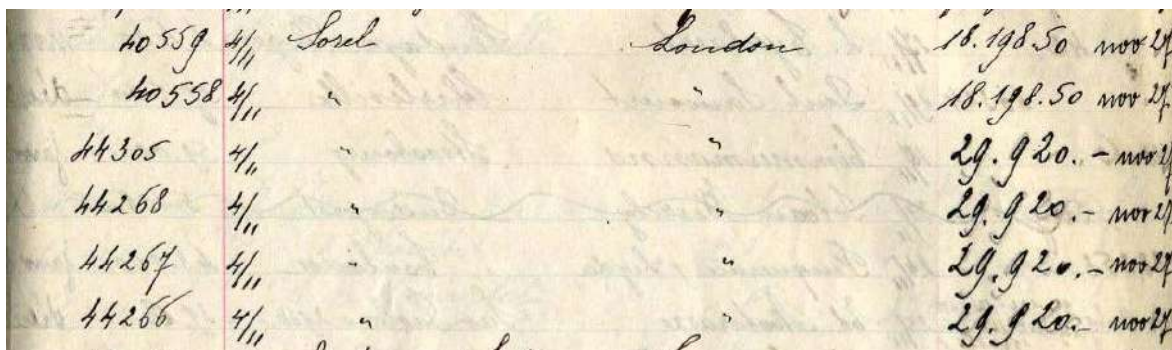 40559 4/11 Sorel London 18.198.50 nov 27
40558 4/11 " " 18.198.50 nov 27
44305 4/11 " " 29.920.- nov 27
44268 4/11 " " 29.920.- nov 27
44267 4/11 " " 29.920.- nov 27
44266 4/11 " " 29.920.- nov 27